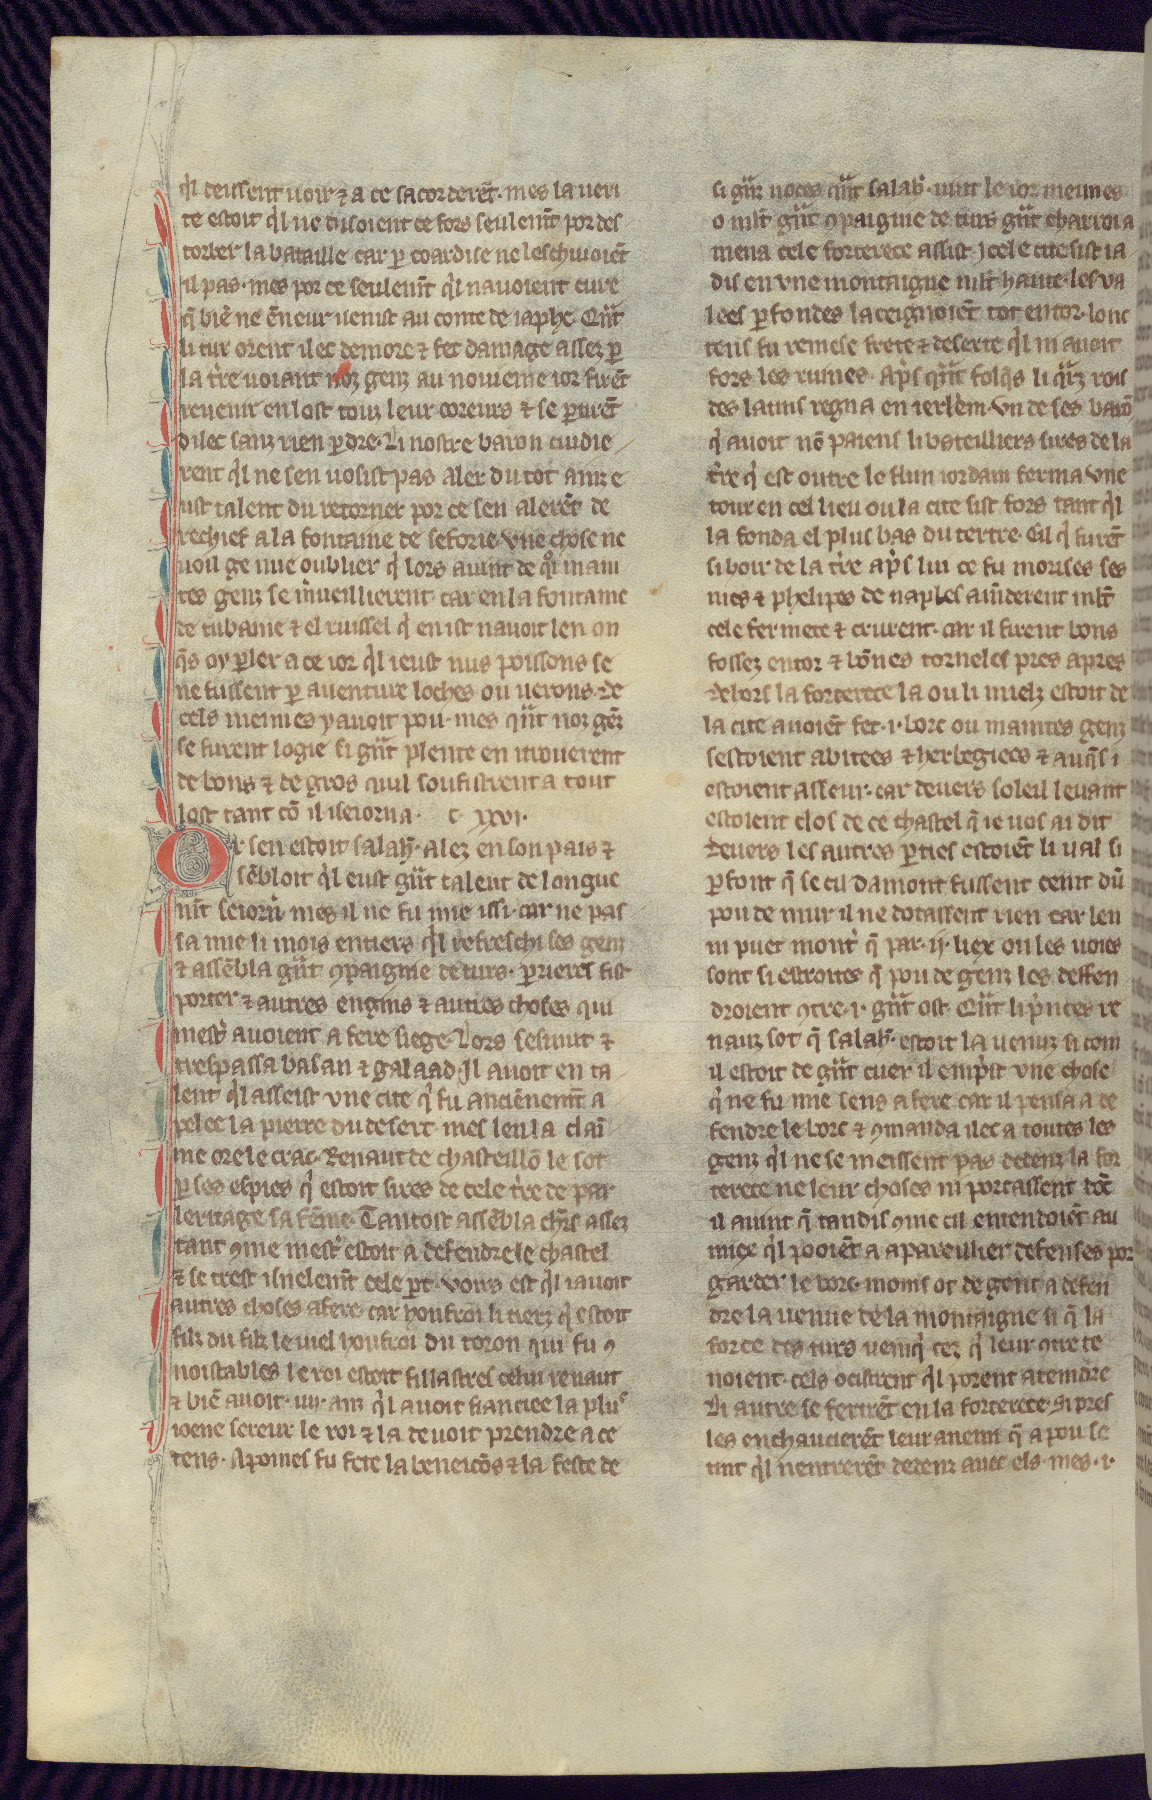 q̉l deissent uoir ⁊ a ce sacorderẽt. mes la ueri
te estoit q̉l ne disoient ce fors seulem̃t por des
torber la bataille car ꝑ coardise ne leschiuoiẽt
il pas. mes por ce seulem̃t q̉l nauoient cure
q̃ biẽ ne ẽneur uenist au conte de iaphe. Qñt
li tur orent ilec demore ⁊ fet damage assez ꝑ
la t̉re uoiant noz genz au nouieme ior firẽt
reuenir en lost touz leur coreurs ⁊ se ꝑtirẽt
dilec sanz rien ꝑdre. Li nostre baron cuidie
rent q̉l ne sen uosist pas aler du tot ainz e
ust talent du retorner por ce sen alerẽt de
rechief a la fontaine de seforie. vne chose ne
uoil ge mie oublier q̉ lors auint de q̉i main
tes genz se m̉ueillierent. car en la fontaine
de tubanie ⁊ el ruissel q̉ en ist nauoit len on
q̃s oy ꝑler a ce ior q̉l i eust nus poissons se
ne fussent ꝑ auenture loches ou uerons. de
cels meimes y auoit pou. mes qñt noz gẽz
se furent logie si gñt plente en trouerent
de bons ⁊ de gros quil soufistrent a tout
lost tant cõ il iseiorna. c xxvi.
Or sen estoit salah̃. alez en son pais ⁊
sẽbloit q̉l eust gñt talent de longue
m̃t seiorn̉. mes il ne fu mie issi. car ne pas
sa mie li mois entiers q̉l refreschi ses genz
⁊ assẽbla gñt ꝯpaignie de turs. ꝑrieres fist
porter ⁊ autres engins ⁊ autres choses qui
mest̉ auoient a fere siege. Lors sesmut ⁊
trespassa basan ⁊ galaad. Il auoit en ta
lent q̉l asseist vne cite q̉ fu anciẽnem̃t a
pelee la pierre du desert. mes len la claĩ
me ore le crac. Renaut de chasteillõ le sot
ꝑ ses espies q̉ estoit sires de cele t̉re de par
leritage sa fẽme. Tantost assẽbla ch̃rs assez
tant ꝯme mest̉ estoit a defendre le chastel
⁊ se trest isnelem̃t cele ꝑt. Voirs est q̉l i auoit
autres choses afere. car honfroi li tierz q̉ estoit
filz du filz le viel honfroi du toron qui fu ꝯ
noistables le roi estoit fillastres celui renaut
⁊ biẽ auoit. iiij. anz q̉l auoit fiancee la plus
ioene sereur le roi ⁊ la deuoit prendre a ce
tens. Apoines fu fete la beneicõs ⁊ la feste de
si gñz noces qñt salah̃. uint le ior meimes
o ml̃t gñt ꝯpaignie de turs gñt charroi a
mena cele forterece assist. Icele cite sist ia
dis en vne montaigne ml̃t haute. les va
lees ꝑfondes la ceignoiẽt tot entor. lonc
tens fu remese frete ⁊ deserte q̉l ni auoit
fors les ruines. Ap̃s qñt folq̃s li q̉rz rois
des latins regna en ierlẽm. vn de ses barõ
q̉ auoit nõ paiens li boteilliers sires de la
t̉re q̉ est outre le flun iordain ferma vne
tour en cel lieu ou la cite sist fors tant q̉l
la fonda el plus bas du tertre. Cil q̉ furẽt
si hoir de la t̉re ap̃s lui ce fu morises ses
nies ⁊ phelipes de naples am̃derent ml̃t
cele fermete ⁊ crurent. car il firent bons
fossez entor ⁊ bõnes torneles pres a pres
dehors la forterece la ou li mielz estoit de
la cite auoiẽt fet. i. borc ou maintes genz
sestoient abitees ⁊ herbegiees ⁊ auq̃s i
estoient asseur. car deuers soleil leuant
estoient clos de ce chastel q̃ ie vos ai dit
deuers les autres ꝑties estoiẽt li ual si
ꝑfont q̃ se cil damont fussent ceint dũ
pou de mur il ne dotassent rien car len
ni puet mont̉ q̃ par. ij. liex ou les uoies
sont si estroites q̃ pou de genz les deffen
droient ꝯtre. i. gñt ost. Qñt li p̉nces re
nauz sot q̃ salah̃. estoit la uenuz si com
il estoit de gñt cuer il emp̉it vne chose
q̉ ne fu mie sens a fere car il pensa a de
fendre le borc ⁊ ꝯmanda ilec a toutes les
genz q̉l ne se meissent pas dedenz la for
terece ne leur choses ni portassent. dõt
il auint q̃ tandis ꝯme cil entendoiẽt au
miex q̉l pooiẽt a apareillier defenses por
garder le borc. moins ot de gent a defen
dre la uenue de la montaigne si q̃ la
force des turs uenq̉ cez q̉ leur ꝯtrete
noient. cels ocistrent q̉l porent atendre
Li autre se ferirẽt en la forterece. Si pres
les enchaucierẽt leur anemi q̃ a pou se
tint q̉l nentrerẽt dedenz auec els. mes. i.